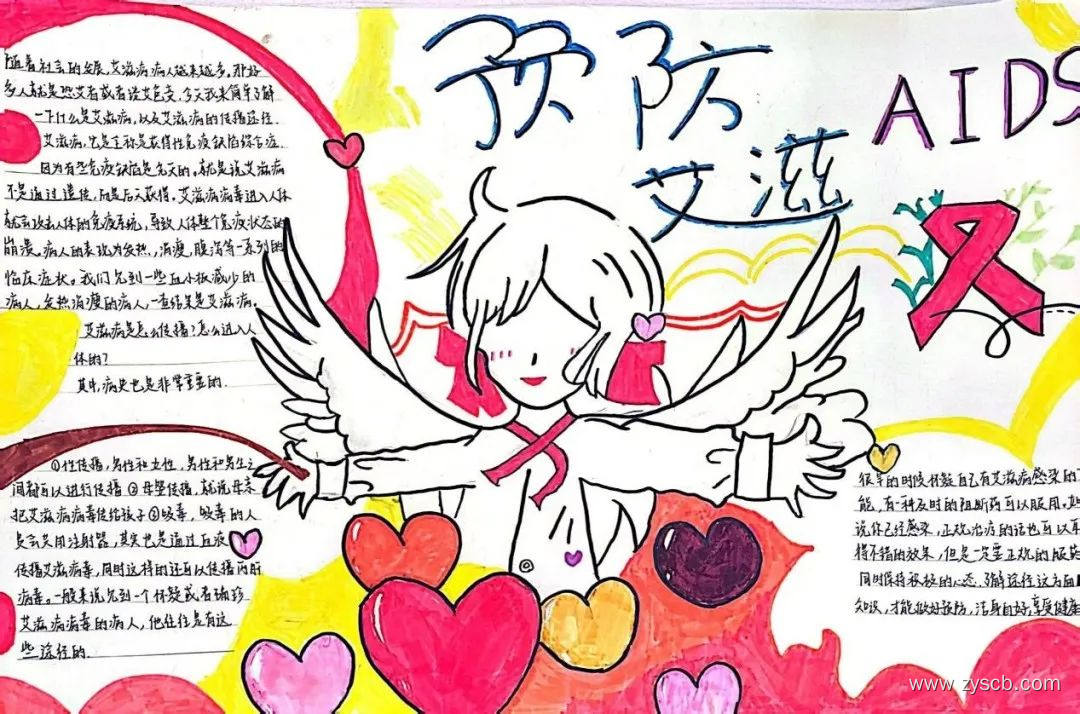 预防
艾滋
AIDS
随着社会的发展,艾滋病病人越来越多。那好
多人就是恐艾者或者谈艾色变,今天我来简单了解
一下什么是艾滋病,以及艾滋病的传播途径.
艾滋病,它是主称是获得性免疫缺陷综合症.
因为有些免疫缺陷是先天的。就是说艾滋病
不是通过遗传,而是后天获得。艾滋病病毒进入人体
就会攻击人体的免疫系统,导致人体整个免疫状态的
崩溃。病人的表现为发热,消瘦,腹泻等一系列的
临床症状。我们见到一些血小板减少的
病人,发热消瘦的病人,一查结果是艾滋病。
艾滋病是怎么传播?怎么进入人
体的?
其中,病史也是非常重要的.
①性传播,男性和女性,男性和男生之
间都可以进行传播②母婴传播,就说母亲
把艾滋病病毒传给孩子③吸毒,吸毒的人
员会共用注射器,其实也是通过血液
传播艾滋病毒,同时这样的还可以传播丙肝
病毒。一般来说见到一个怀疑或者确诊
艾滋病病毒的病人,他往往是有这
些途径的.
很早的时候怀疑自己有艾滋病感染的
能,有一种及时的阻断药可以服用。
说你已经感染,正规治疗的话也可以
得不错的效果,但是一定要正规的服药
同时保持积极的心态,了解途径这方面
知识,才能做好预防,洁身自好,享受健康
www.zyscb.com